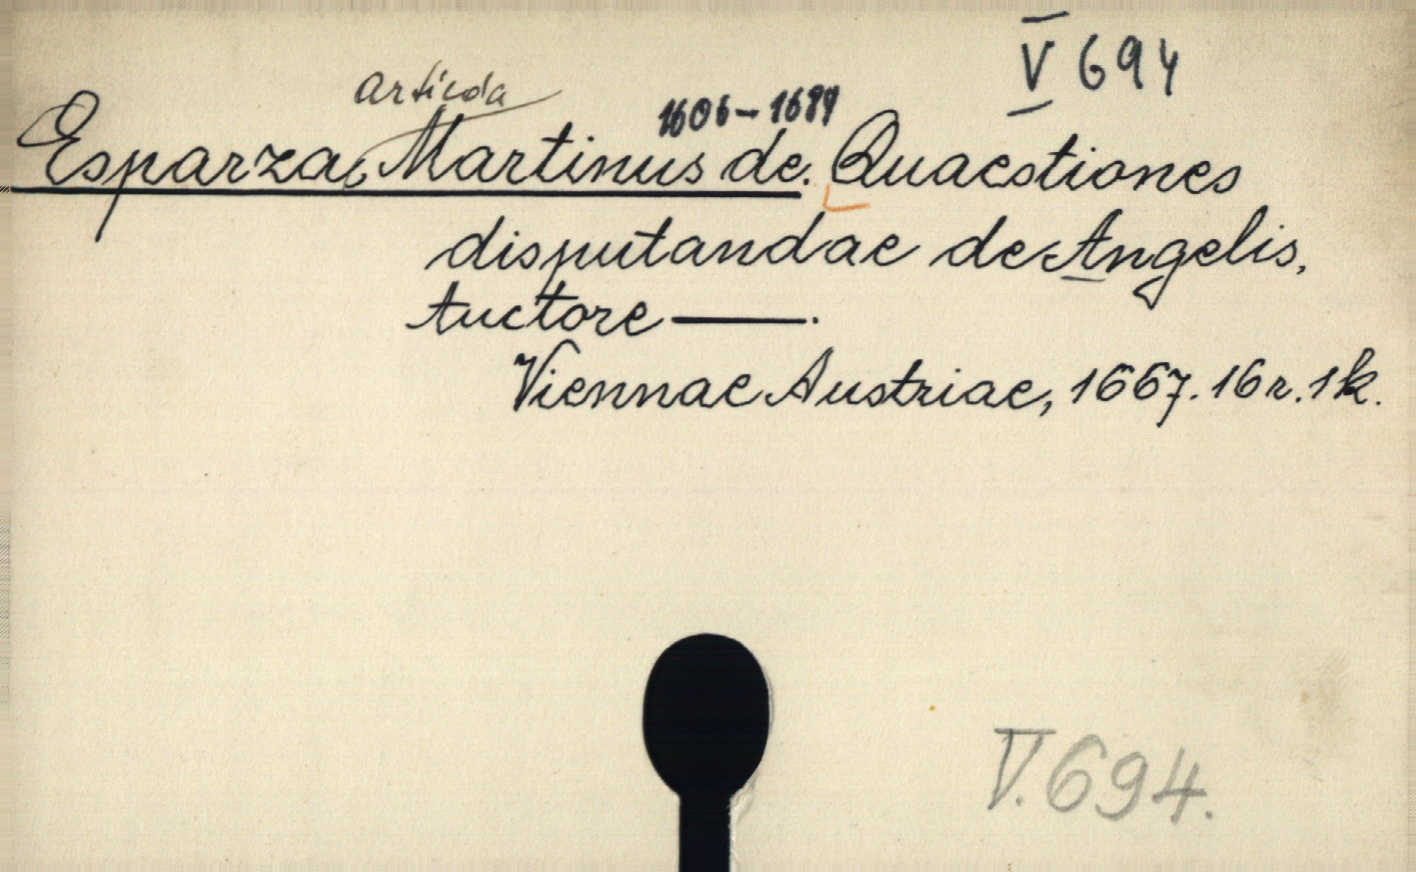 V 694
Articda
1606-1689
Esparza, Martinus de. Quaestiones
disputandae de Angelis,
Auctore ——.
Viennae Austriae, 1667. 16r. 1k.
V. 694.